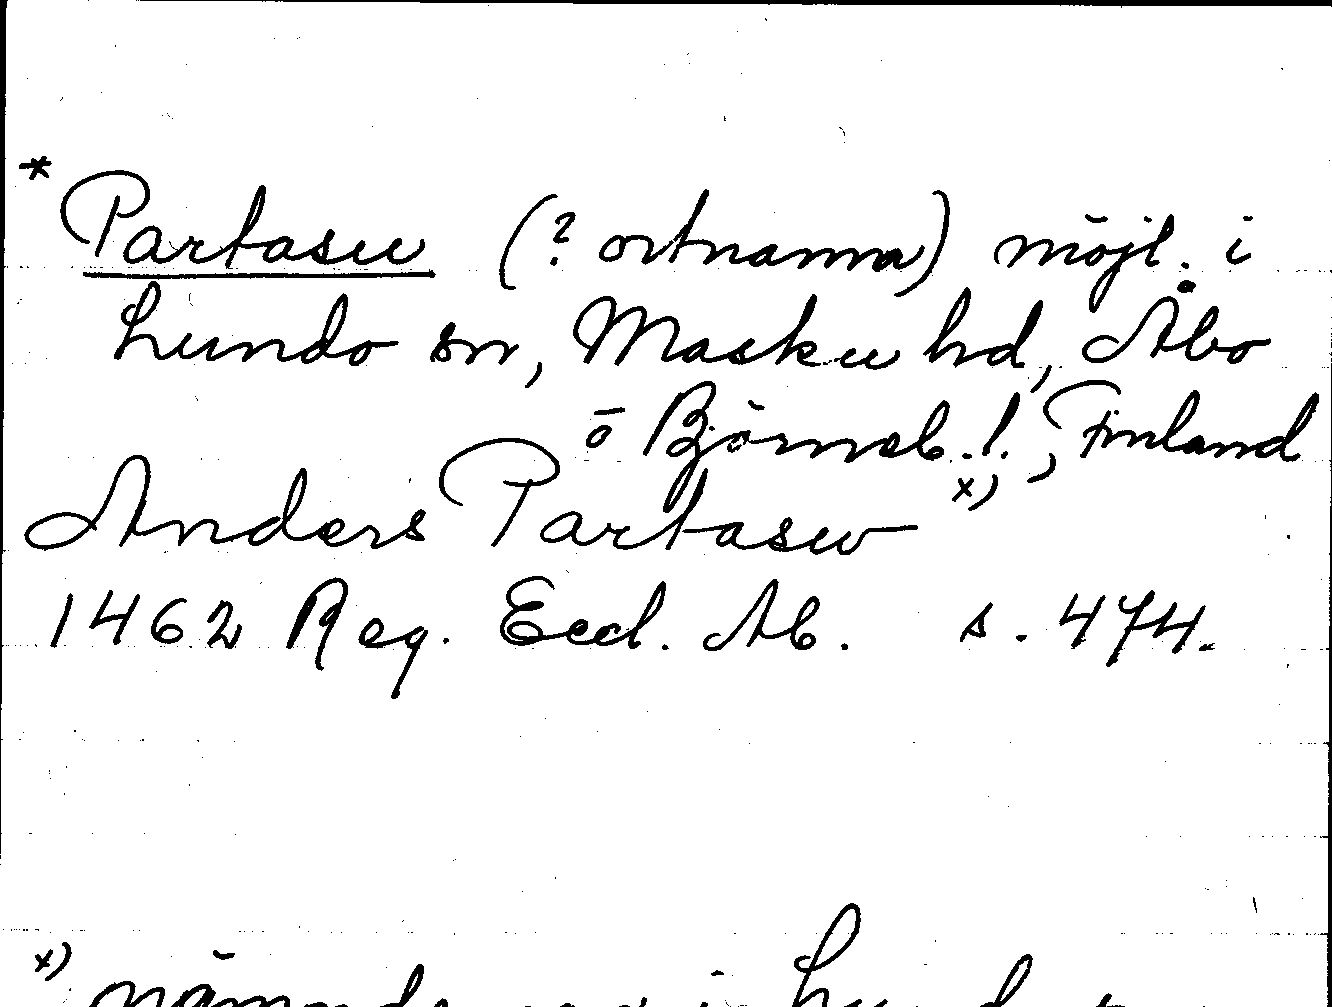 * Partasu (? ortnamn) möjl. i
Lundo sn, Masku hd, Åbo
o Björneb. l., Finland
Anders Partasw x)
1462 Reg. Eccl. Ab. s. 474.
x)